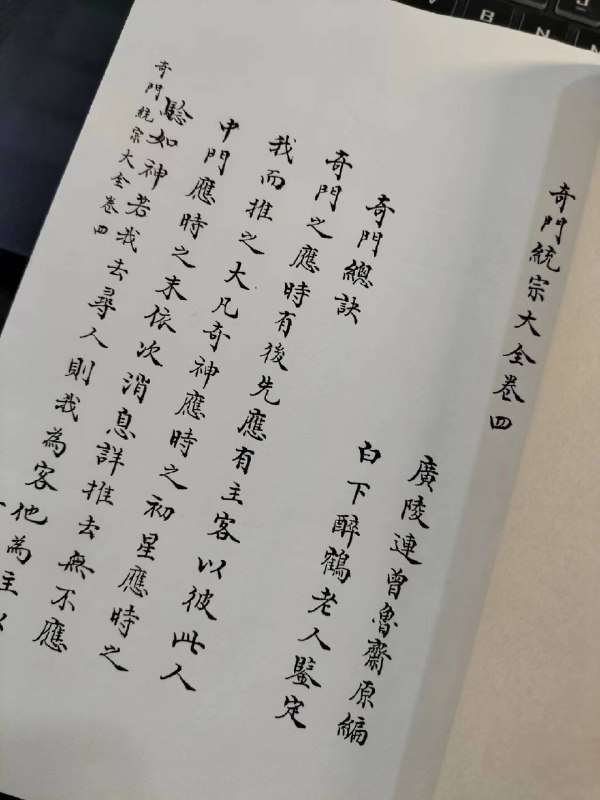 奇門統宗大全卷四
廣陵連曾魯齋原編
白下醉鶴老人鑒定
奇門總訣
奇門之應時有後先應有主客以彼此人
我而推之大凡奇神應時之初星應時之
中門應時之末依次消息詳推去無不應
驗如神若我去尋人則我為客他為主以
奇門統宗大全卷四
B
N